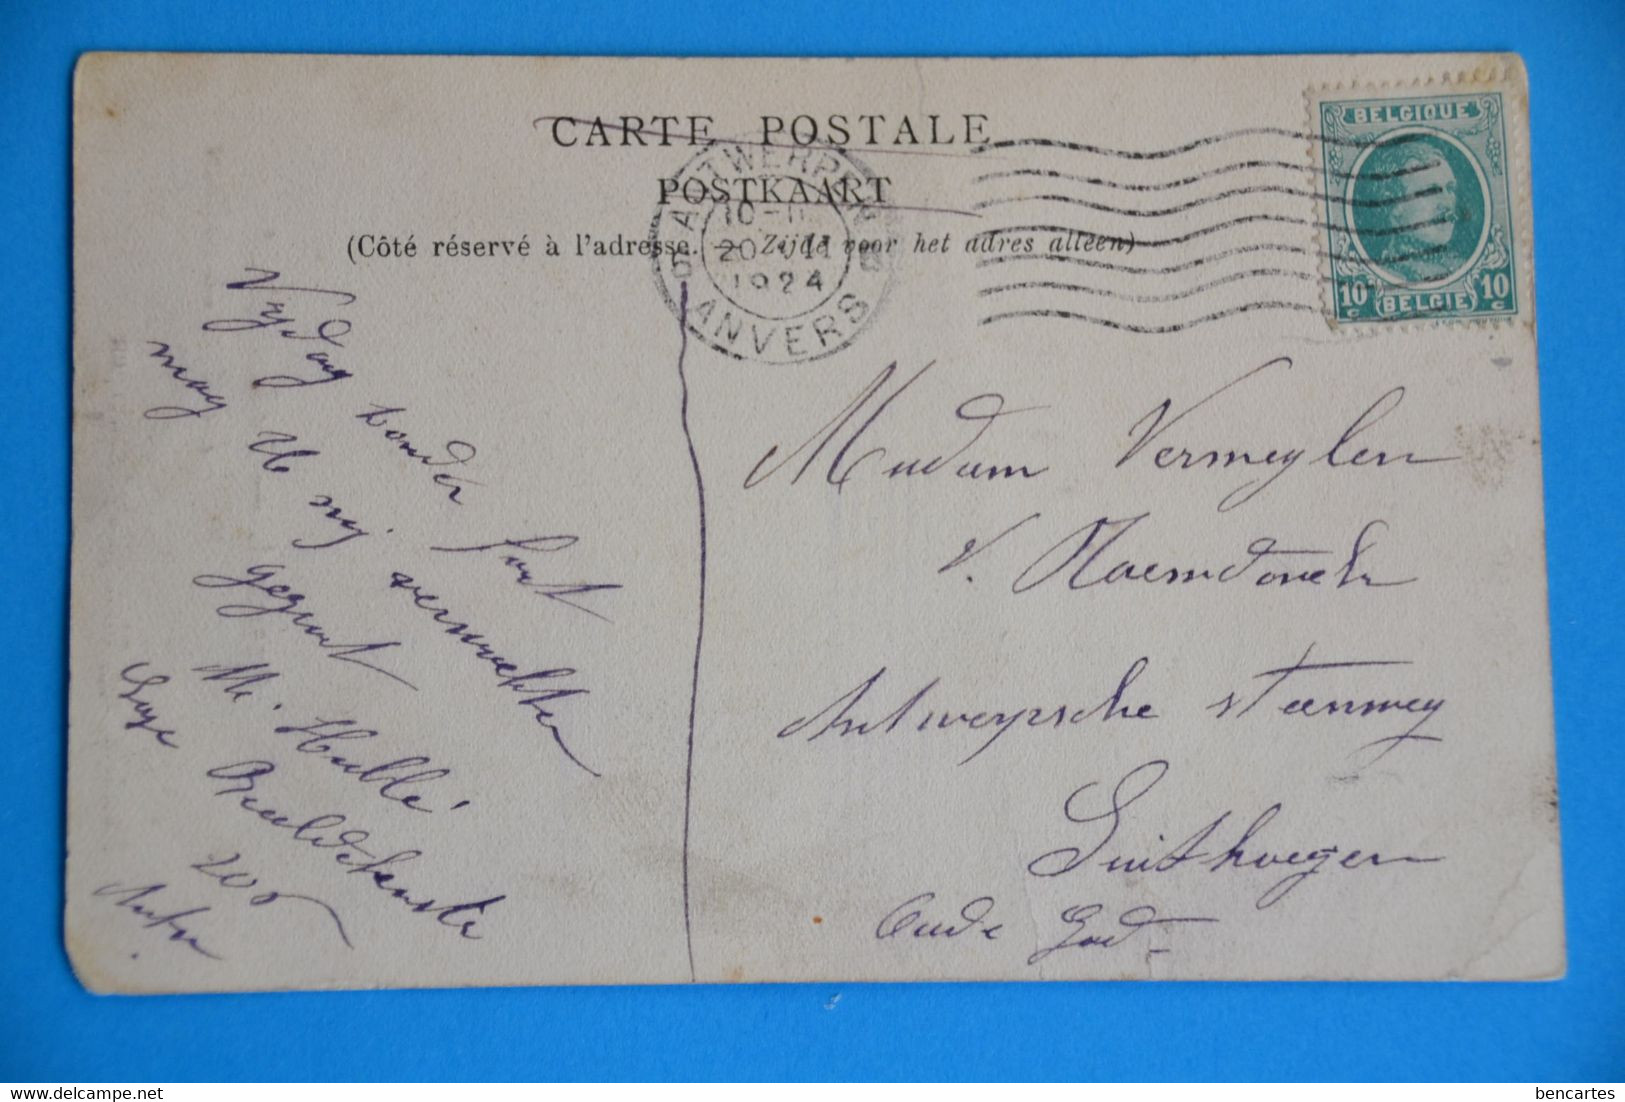 CARTE POSTALE
POSTKAART
(Côté réservé à l'adresse. — Zijde voor het adres alleen)
ANTWERPEN
10-11
20 VII
1924
ANVERS
BELGIQUE
10c 10c
BELGIE
Vrydag zonder fout
mag U mij verwachten
gegroet
M. Hubblé
Lange Beeldekenstr
200
Antw.
Madam Vermeylen
V. Haesendonck
Antwerpsche steenweg
Luithaegen
Oude God
bencartes